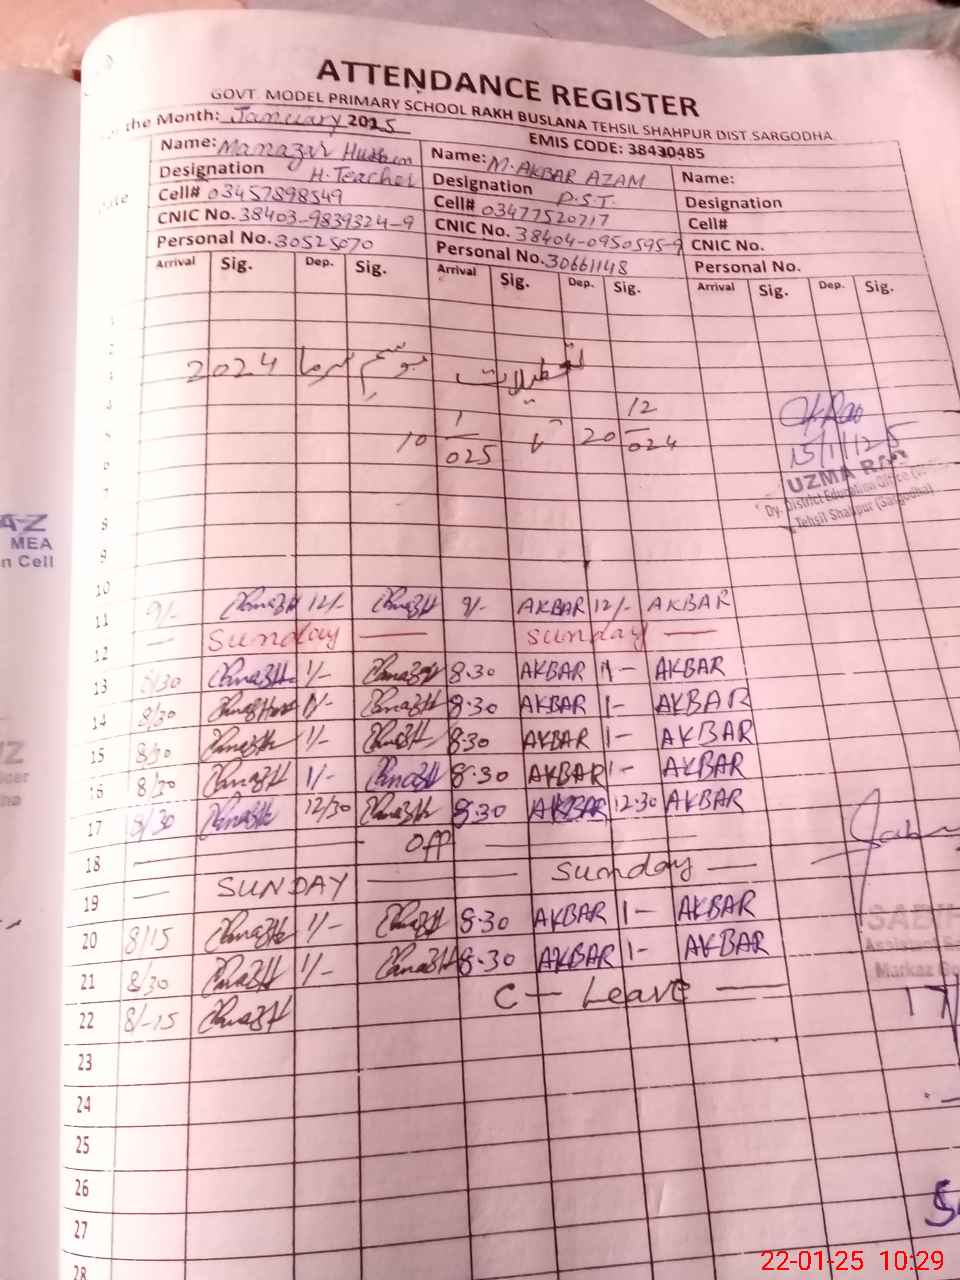 ATTENDANCE REGISTER
GOVT. MODEL PRIMARY SCHOOL RAKH BUSLANA TEHSIL SHAHPUR DIST.SARGODHA.
the Month: January 2025
EMIS CODE: 38430485
Name: Manazir Hussain Name: M. AKBAR AZAM Name:
Designation H. Teacher Designation P.S.T. Designation
Cell# 03457898549 Cell# 03477520717 Cell#
CNIC No. 38403-9839324-9 CNIC No. 38404-0950595-9 CNIC No.
Personal No. 30525070 Personal No. 30661148 Personal No.
Arrival Sig. Dep. Sig. Arrival Sig. Dep. Sig. Arrival Sig. Dep. Sig.
1
2
تعطیلات موسم سرما 2024
4
20 12/024 تا 10 1/025
15/1/25
UZMA
Dy. District Education Office
Tehsil Shahpur (Sargodha)
6
7
8
9
10
11 9/- 12/- 9/- AKBAR 12/- AKBAR
12 — Sunday — Sunday —
13 8/30 1/- 8.30 AKBAR 1- AKBAR
14 8/30 1/- 8.30 AKBAR 1- AKBAR
15 8/30 1/- 8.30 AKBAR 1- AKBAR
16 8/30 1/- 8.30 AKBAR 1- AKBAR
17 8/30 12/30 8.30 AKBAR 12.30 AKBAR
18 Off
19 — SUNDAY — Sunday —
20 8/15 1/- 8.30 AKBAR 1- AKBAR
21 8/30 1/- 8.30 AKBAR 1- AKBAR
22 8/-15 C - Leave —
23
24
25
26
27
28
SABI
Assistant
Markaz
17/
A-Z
MEA
n Cell
IZ
icer
22-01-25 10:29